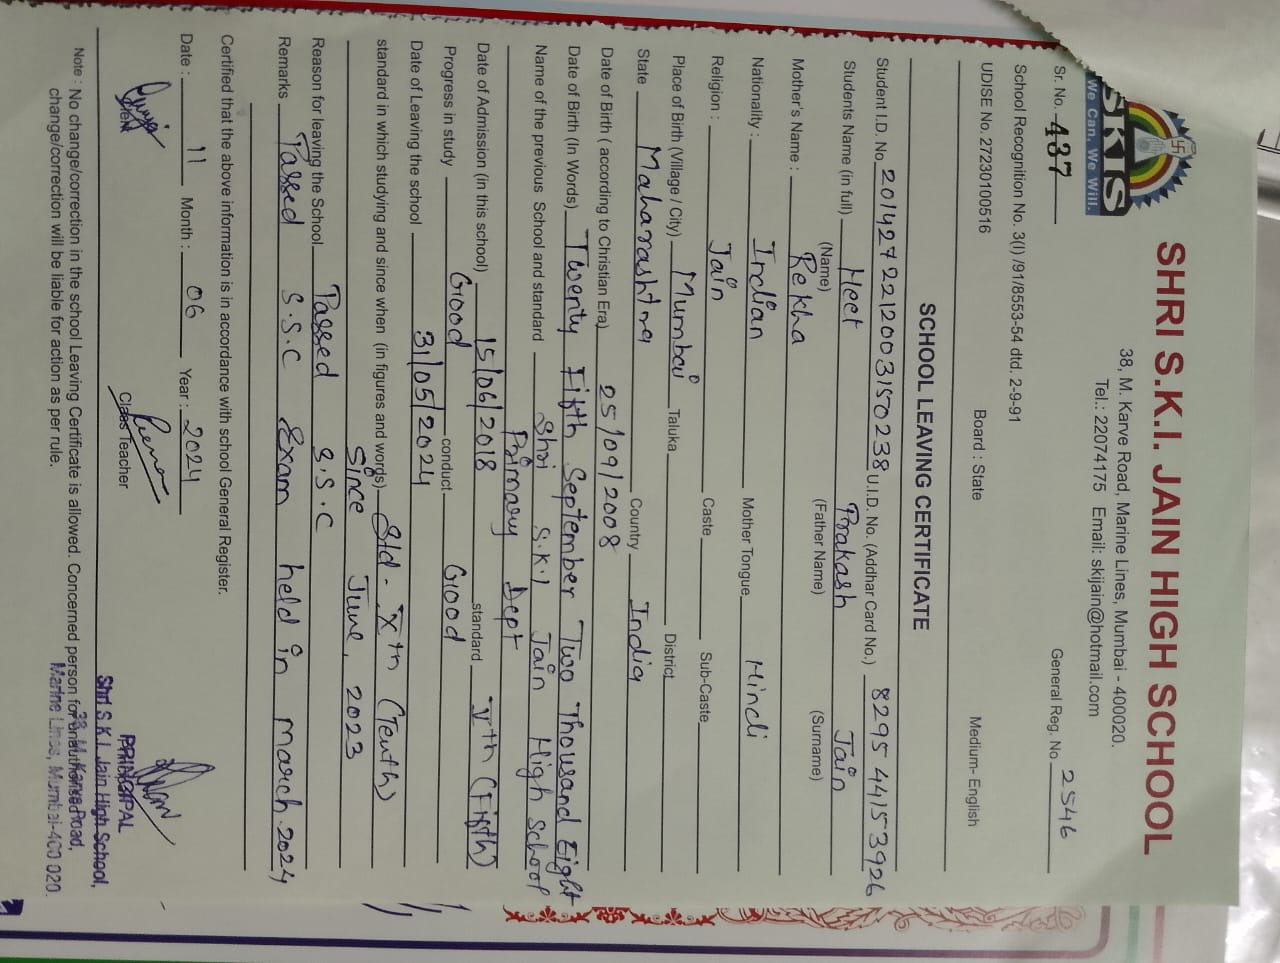 SHRI S.K.I. JAIN HIGH SCHOOL
38, M. Karve Road, Marine Lines, Mumbai - 400020.
Tel.: 22074175 Email: skijain@hotmail.com
SKIS
We Can, We Will.
Sr. No. 437 General Reg. No 2546
School Recognition No. 3(I) /91/8553-54 dtd. 2-9-91
UDISE No. 27230100516 Board : State Medium- English
SCHOOL LEAVING CERTIFICATE
Student I.D. No. 2014272212003150238 U.I.D. No. (Addhar Card No.) 8295 4415 3926
Students Name (in full) Heet Prakash Jain
(Name) (Father Name) (Surname)
Mother's Name : Rekha
Nationality : Indian Mother Tongue Hindi
Religion : Jain Caste Sub-Caste
Place of Birth (Village / City) Mumbai Taluka District
State Maharashtra Country India
Date of Birth ( according to Christian Era) 25/09/2008
Date of Birth (In Words) Twenty Fifth September Two Thousand Eight
Name of the previous School and standard Shri S.K.I Jain High School
Primary Dept
Date of Admission (in this school) 15/06/2018 standard Vth (Fifth)
Progress in study Good conduct Good
Date of Leaving the school 31/05/2024
standard in which studying and since when (in figures and words) Std - Xth (Tenth)
Since June, 2023
Reason for leaving the School Passed S.S.C
Remarks Passed S.S.C Exam held in march-2024
Certified that the above information is in accordance with school General Register.
Date : 11 Month : 06 Year : 2024
Class Teacher
PRINCIPAL
Shri S.K.I. Jain High School,
38, M. Karve Road,
Marine Lines, Mumbai-400 020.
Note : No change/correction in the school Leaving Certificate is allowed. Concerned person for unauthorised
change/correction will be liable for action as per rule.